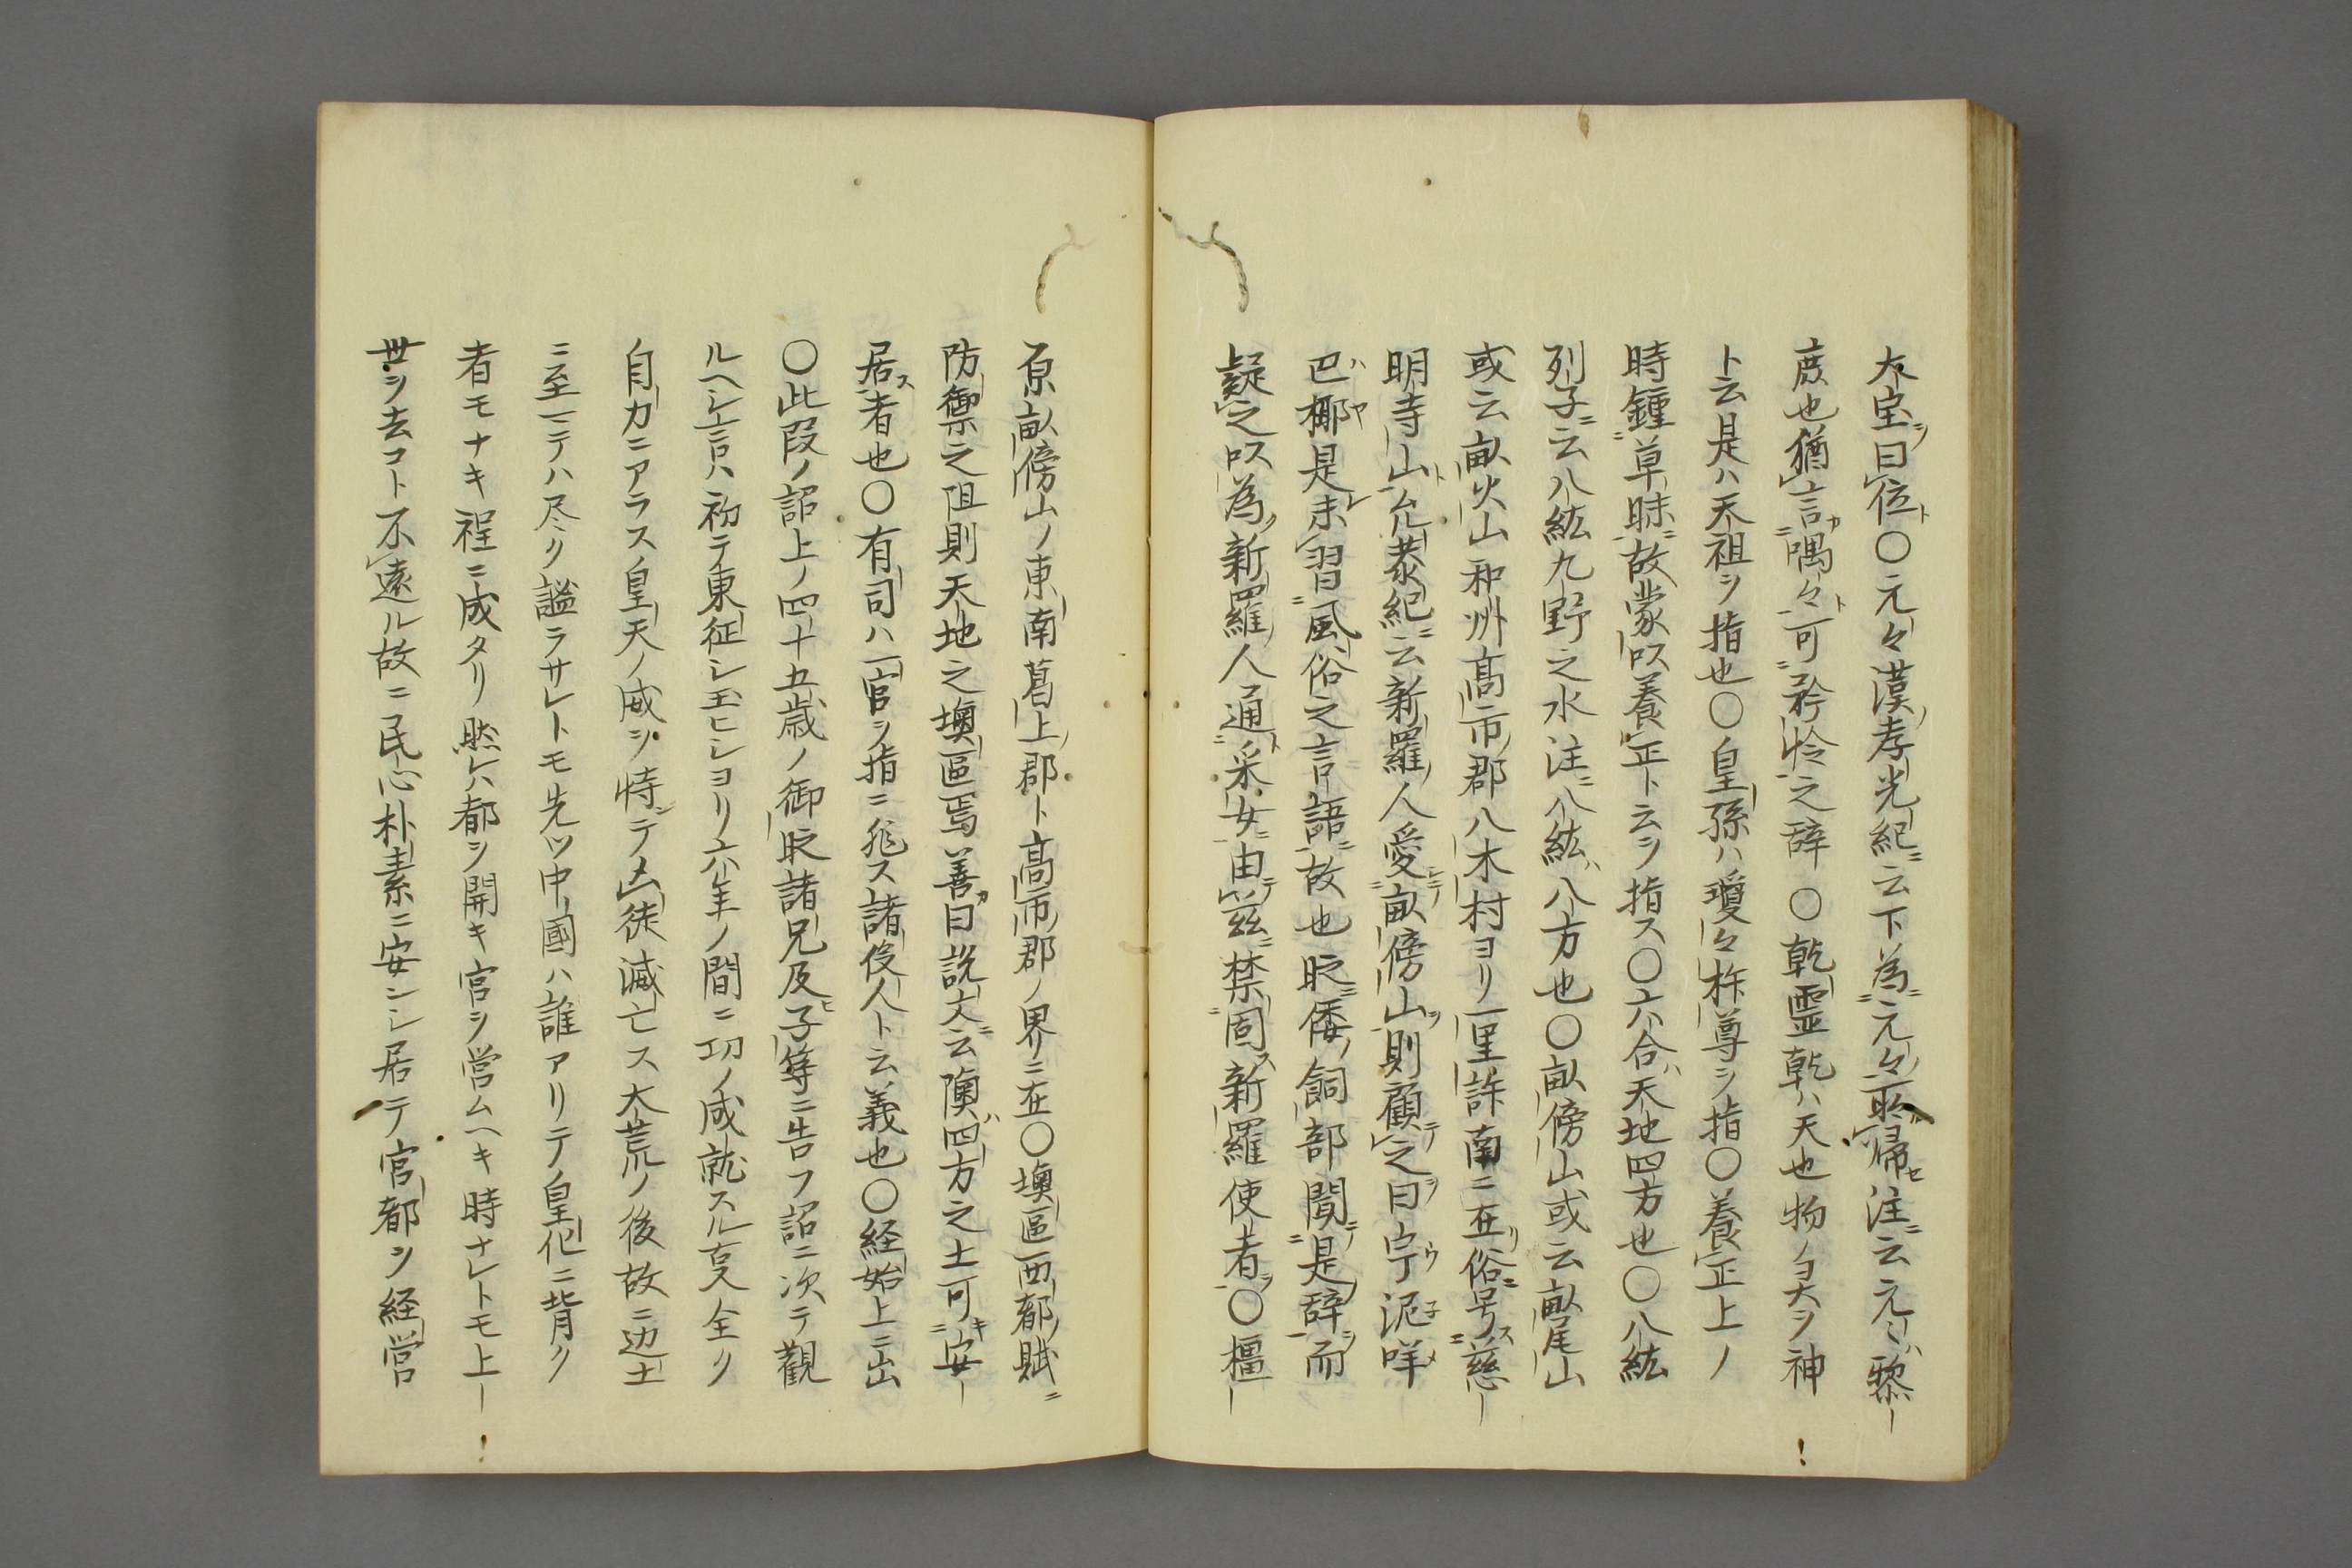 大宝ヲ曰位ト〇元々漢孝光紀ニ云下為ニ元々ノ所帰セ注ニ云元々ハ黎ー
庶也猶言カ隅々ト可ニ矜怜之辞〇乾霊乾ハ天也物ノヨキヲ神
ト云是ハ天祖ヲ指也〇皇孫ハ瓊々杵尊ヲ指〇養正上ノ
時鍾ニ草昧ニ故蒙以養正ト云ヲ指ス〇六合ハ天地四方也〇八紘
列子ニ云八紘九野之水注ニ八紘ハ八方也〇畝傍山或云畝尾山
或云畝火山和州高市郡八木村ヨリ一里許南ニ在リ俗ニ号ス慈ー
明寺山ト允恭紀ニ云新羅ノ人愛シテ畝傍山ヲ則顧テ之ヲ曰宇ウ泥子咩メ
巴ハ椰ヤ是未レ習ニ風俗之言語ニ故也時ニ倭ノ飼部聞テ是辞ヲ而
疑之以為ノ新羅ノ人通ト采女ニ由テ茲ニ禁固ス新羅使者ヲ〇橿ー
原畝傍山ノ東南葛上ノ郡ト高市郡ノ界ニ在〇墺區西都ノ賦ニ
防禦之阻則天地之墺區焉善カ曰説文ニ云隩ハ四方之土可キ安ー
居ス者也〇有司ハ一官ヲ指ニ非ス諸役人ト云義也〇経始上ニ出
〇此段ノ詔上ノ四十五歳ノ御時諸兄及ヒ子等ニ告フ詔ニ次テ観
ルヘシ言ハ初テ東征シ玉ヒシヨリ六年ノ間ニ功ノ成就スル叓全ク
自力ニアラス皇天ノ威ヲ恃テ凶徒滅亡ス大荒ノ後故ニ辺土
ニ至テハ尽ク謐ラサレトモ先ツ中國ハ誰アリテノ皇化ニ背ク
者モナキ程ニ成タリ然レハ都ヲ開キ官ヲ営ムヘキ時ナレトモ上ー
世ヲ去コト不遠ル故ニ民心朴素ニ安ンシ居テ官都ヲ経営